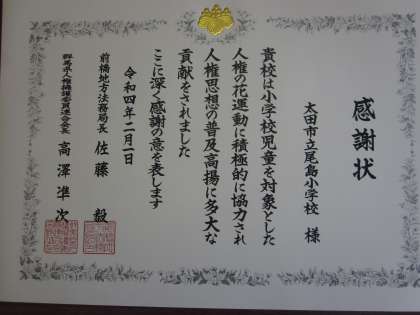 感謝状
太田市立尾島小学校 様
貴校は小学校児童を対象とした
人権の花運動に積極的に協力され
人権思想の普及高揚に多大な
貢献をされました
ここに深く感謝の意を表します
令和四年二月一日
前橋地方法務局長 佐藤 毅
群馬県人権擁護委員連合会長 高澤準次